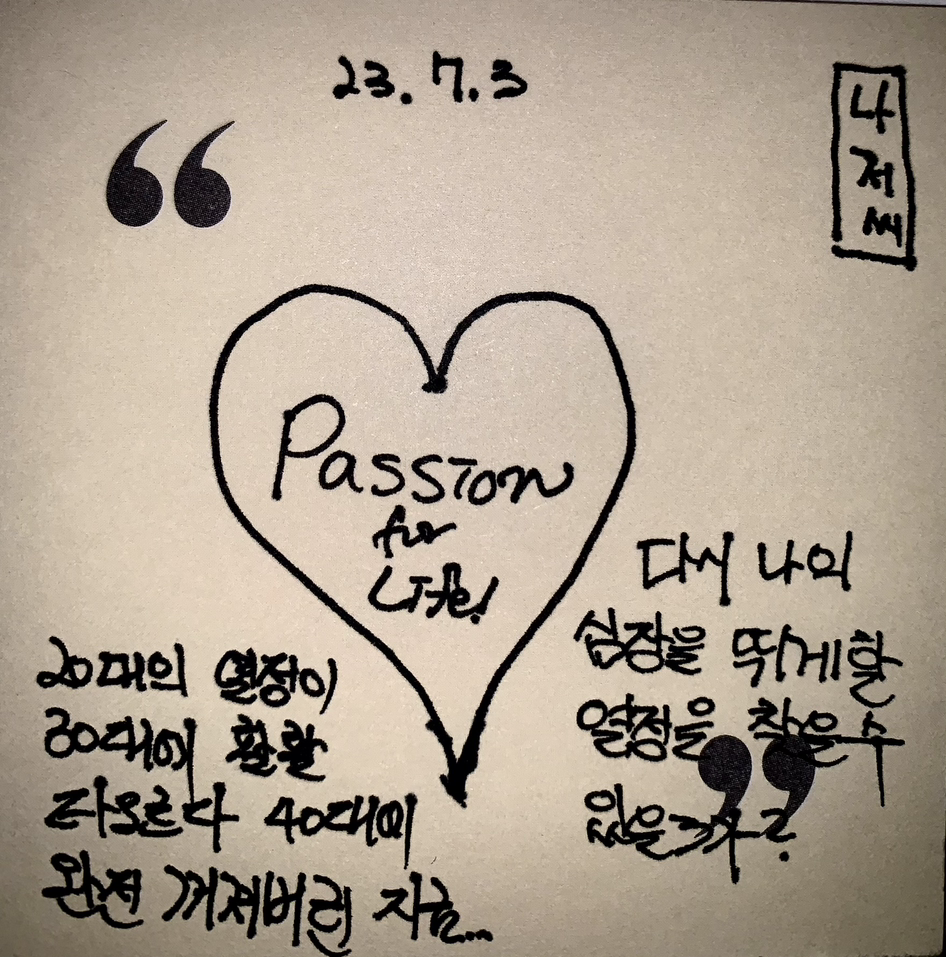 23.7.3
나
저
씨
Passion
for
Life!
20대의 열정이
30대에 활활
타오르다 40대에
완전 꺼져버린 지금...
다시 나의
심장을 뛰게할
열정을 찾을수
있을까?